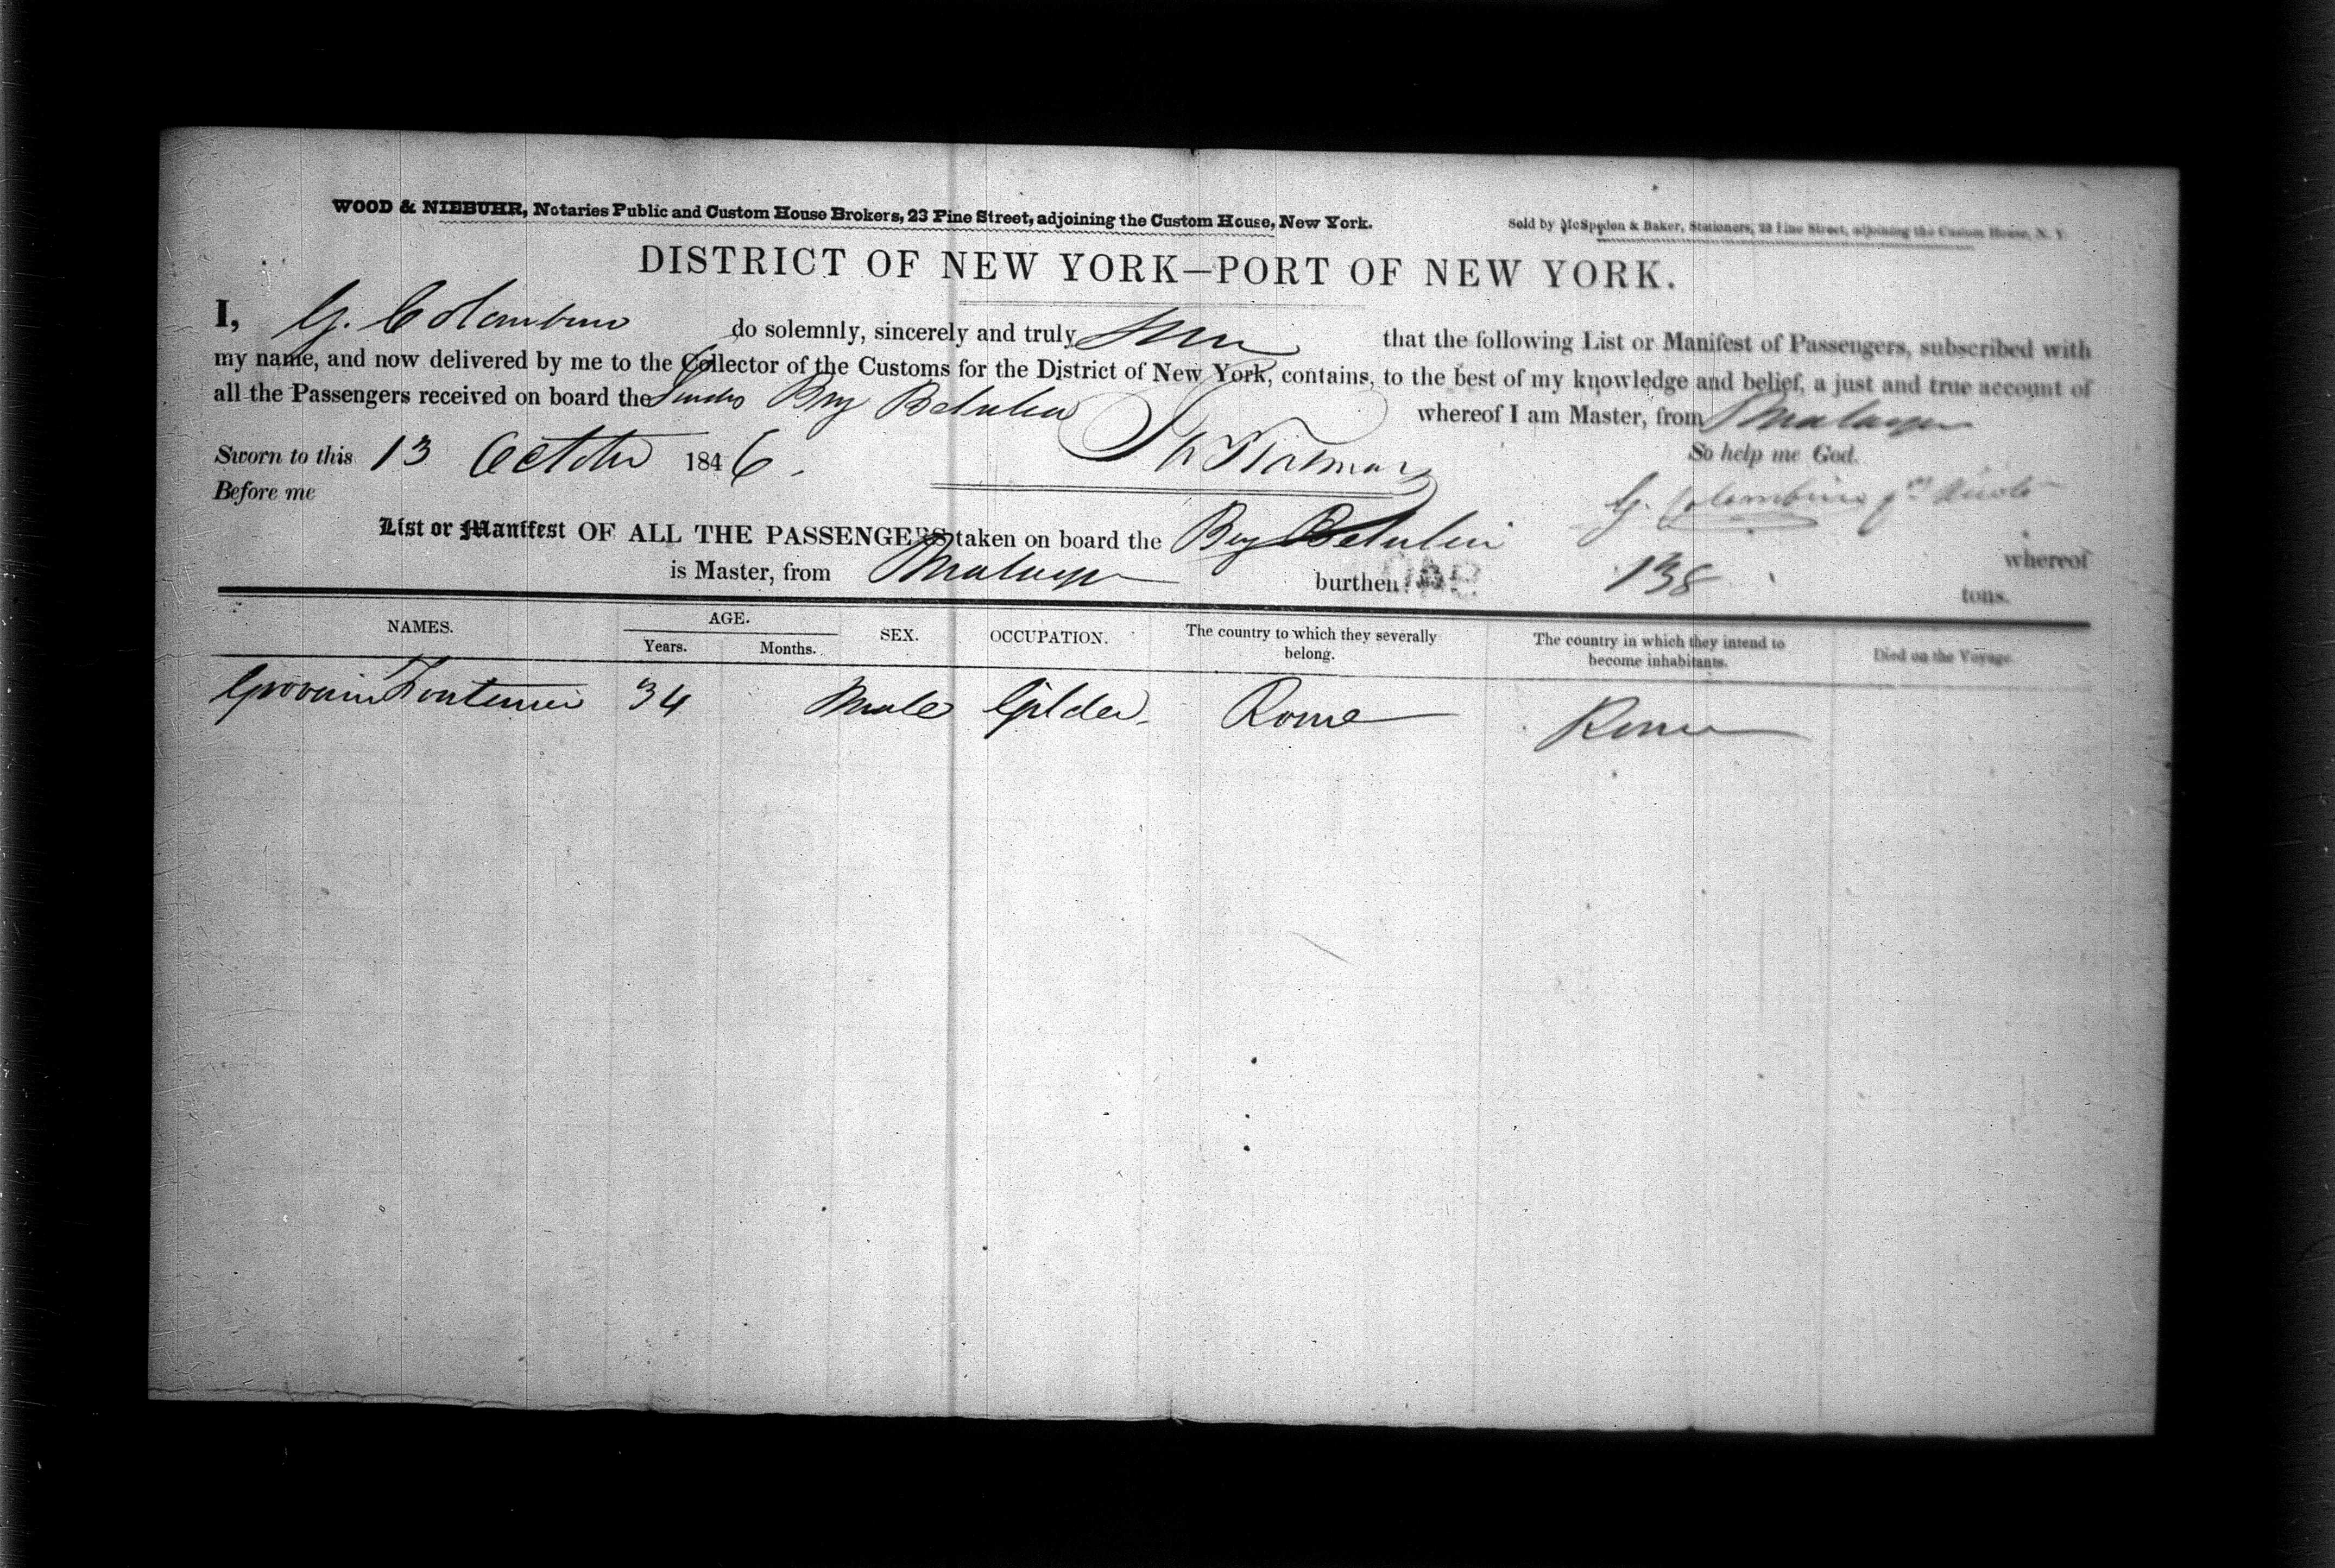 WOOD & NIEBUHR, Notaries Public and Custom House Brokers, 23 Pine Street, adjoining the Custom House, New York.
Sold by McSpedon & Baker, Stationers, 23 Pine Street, adjoining the Custom House, N. Y.
DISTRICT OF NEW YORK—PORT OF NEW YORK.
I, G. Colombino do solemnly, sincerely and truly that the following List or Manifest of Passengers, subscribed with
my name, and now delivered by me to the Collector of the Customs for the District of New York, contains, to the best of my knowledge and belief, a just and true account of
all the Passengers received on board the Brig whereof I am Master, from Malaga
Sworn to this 13 October 1846. So help me God.
Before me G. Colombino
List or Manifest OF ALL THE PASSENGERS taken on board the Brig whereof
is Master, from Malaga burthen 138 tons.
NAMES. AGE. SEX. OCCUPATION. The country to which they severally belong. The country in which they intend to become inhabitants. Died on the Voyage
Years. Months.
34 Male Gilder Rome Rome